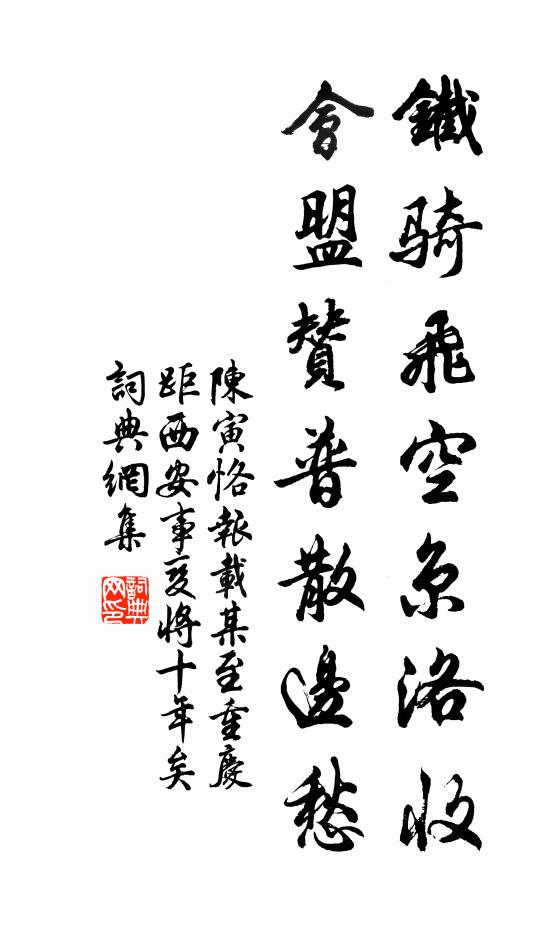 鐵騎飛空京洛收
會盟贊普散邊愁
陳寅恪報載某至重慶
距西安事變將十年矣
詞典網集
詞典網印